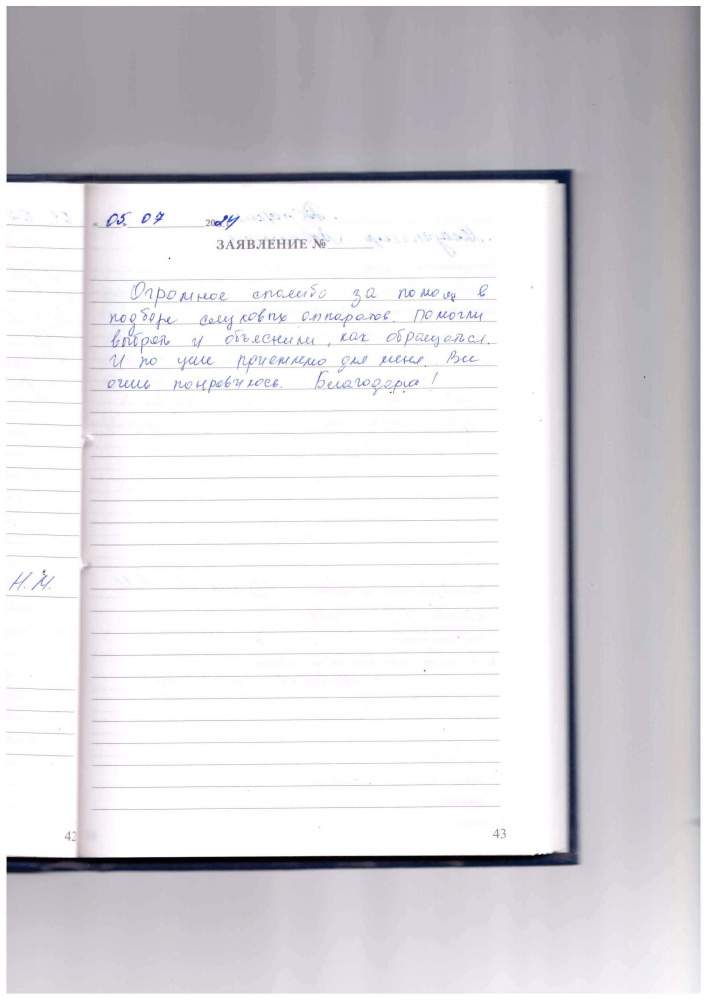 05. 07 2024
ЗАЯВЛЕНИЕ №
Огромное спасибо за помощь в
подборе слуховых аппаратов. Помогли
выбрать и объяснили, как обращаться.
И по цене приемлемо для меня. Все
очень понравилось. Благодарю!
Н.М.
42
43